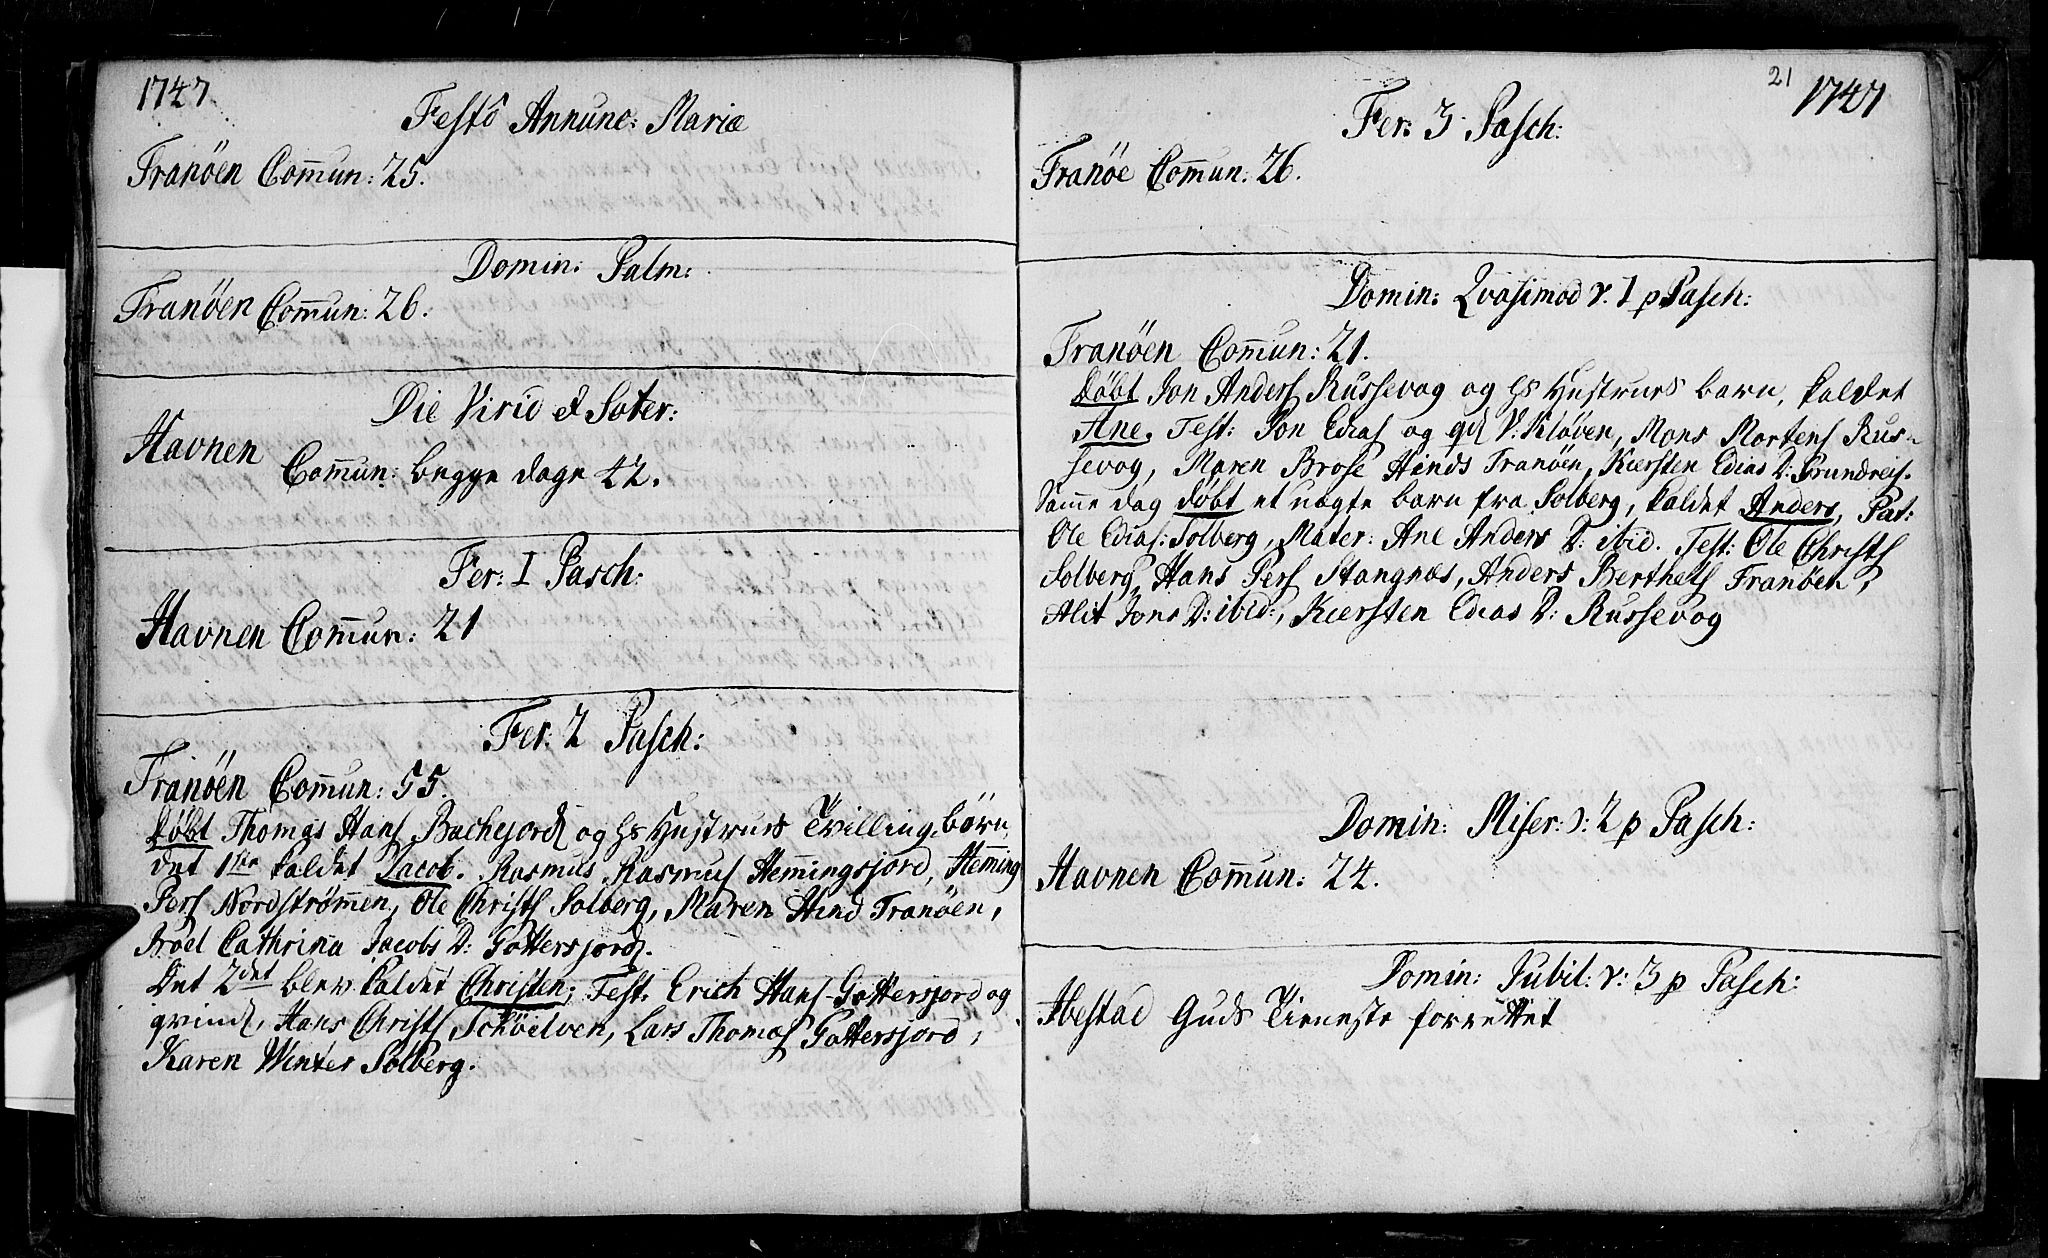 1747.
Festô Annunc: Mariæ
Tranöen Com̄un: 25.
Domin: Palm:
Tranöen Com̄un: 26.
Die Virid et Sater:
Havnen
Com̄un: begge dage 42.
Fer: I Pasch:
Havnen Com̄un: 21
Fer: 2 Pasch:
Tranöen Com̄un: 55.
Døbt Thomas Hans Bachejord og hs Hustrues Tvilling börn,
det 1ste kaldet Jacob. Rasmus Rasmus Hem̄ingsjord, Hem̄ing
Pers Nordström̄en, Ole Christs Solberg, Maren Hind Tranöen,
Cathrina Jacobs D: Gottersjord.
Det 2det blev kaldet Christen; Test: Erich Hans Gottersjord og
qvind, Hans Christs Schöelven, Lars Thomas Gottersjord,
Karen Winter Solberg.
21 1747
Fer: 3 Pasch:
Tranöe Com̄un: 26.
Domin: Qvasimod v. I p Pasch:
Tranöen Com̄un: 21.
Døbt Jon Anders Russevog og hs Hustrues barn, kaldet
Ane, Test: Jon Edias og qd V. Klöven, Mons Mortens Rus-
sevog, Maren Brose Hinds Tranöen, Kiersten Edias D: Grundreis.
Sam̄e dag døbt et uægte barn fra Solberg, kaldet Anders, Pat:
Ole Edias: Solberg, Mater: Ane Anders D: ibid. Test: Ole Christs
Solberg, Hans Pers Stangnæs, Anders Berthels Tranöen,
Alit Jons D: ibid:, Kiersten Edias D: Russevog
Domin: Miser: v: 2 p Pasch:
Havnen Com̄un: 24.
Domin: Jubil: v: 3 p Pasch:
Ibestad Guds Tieneste forrettet